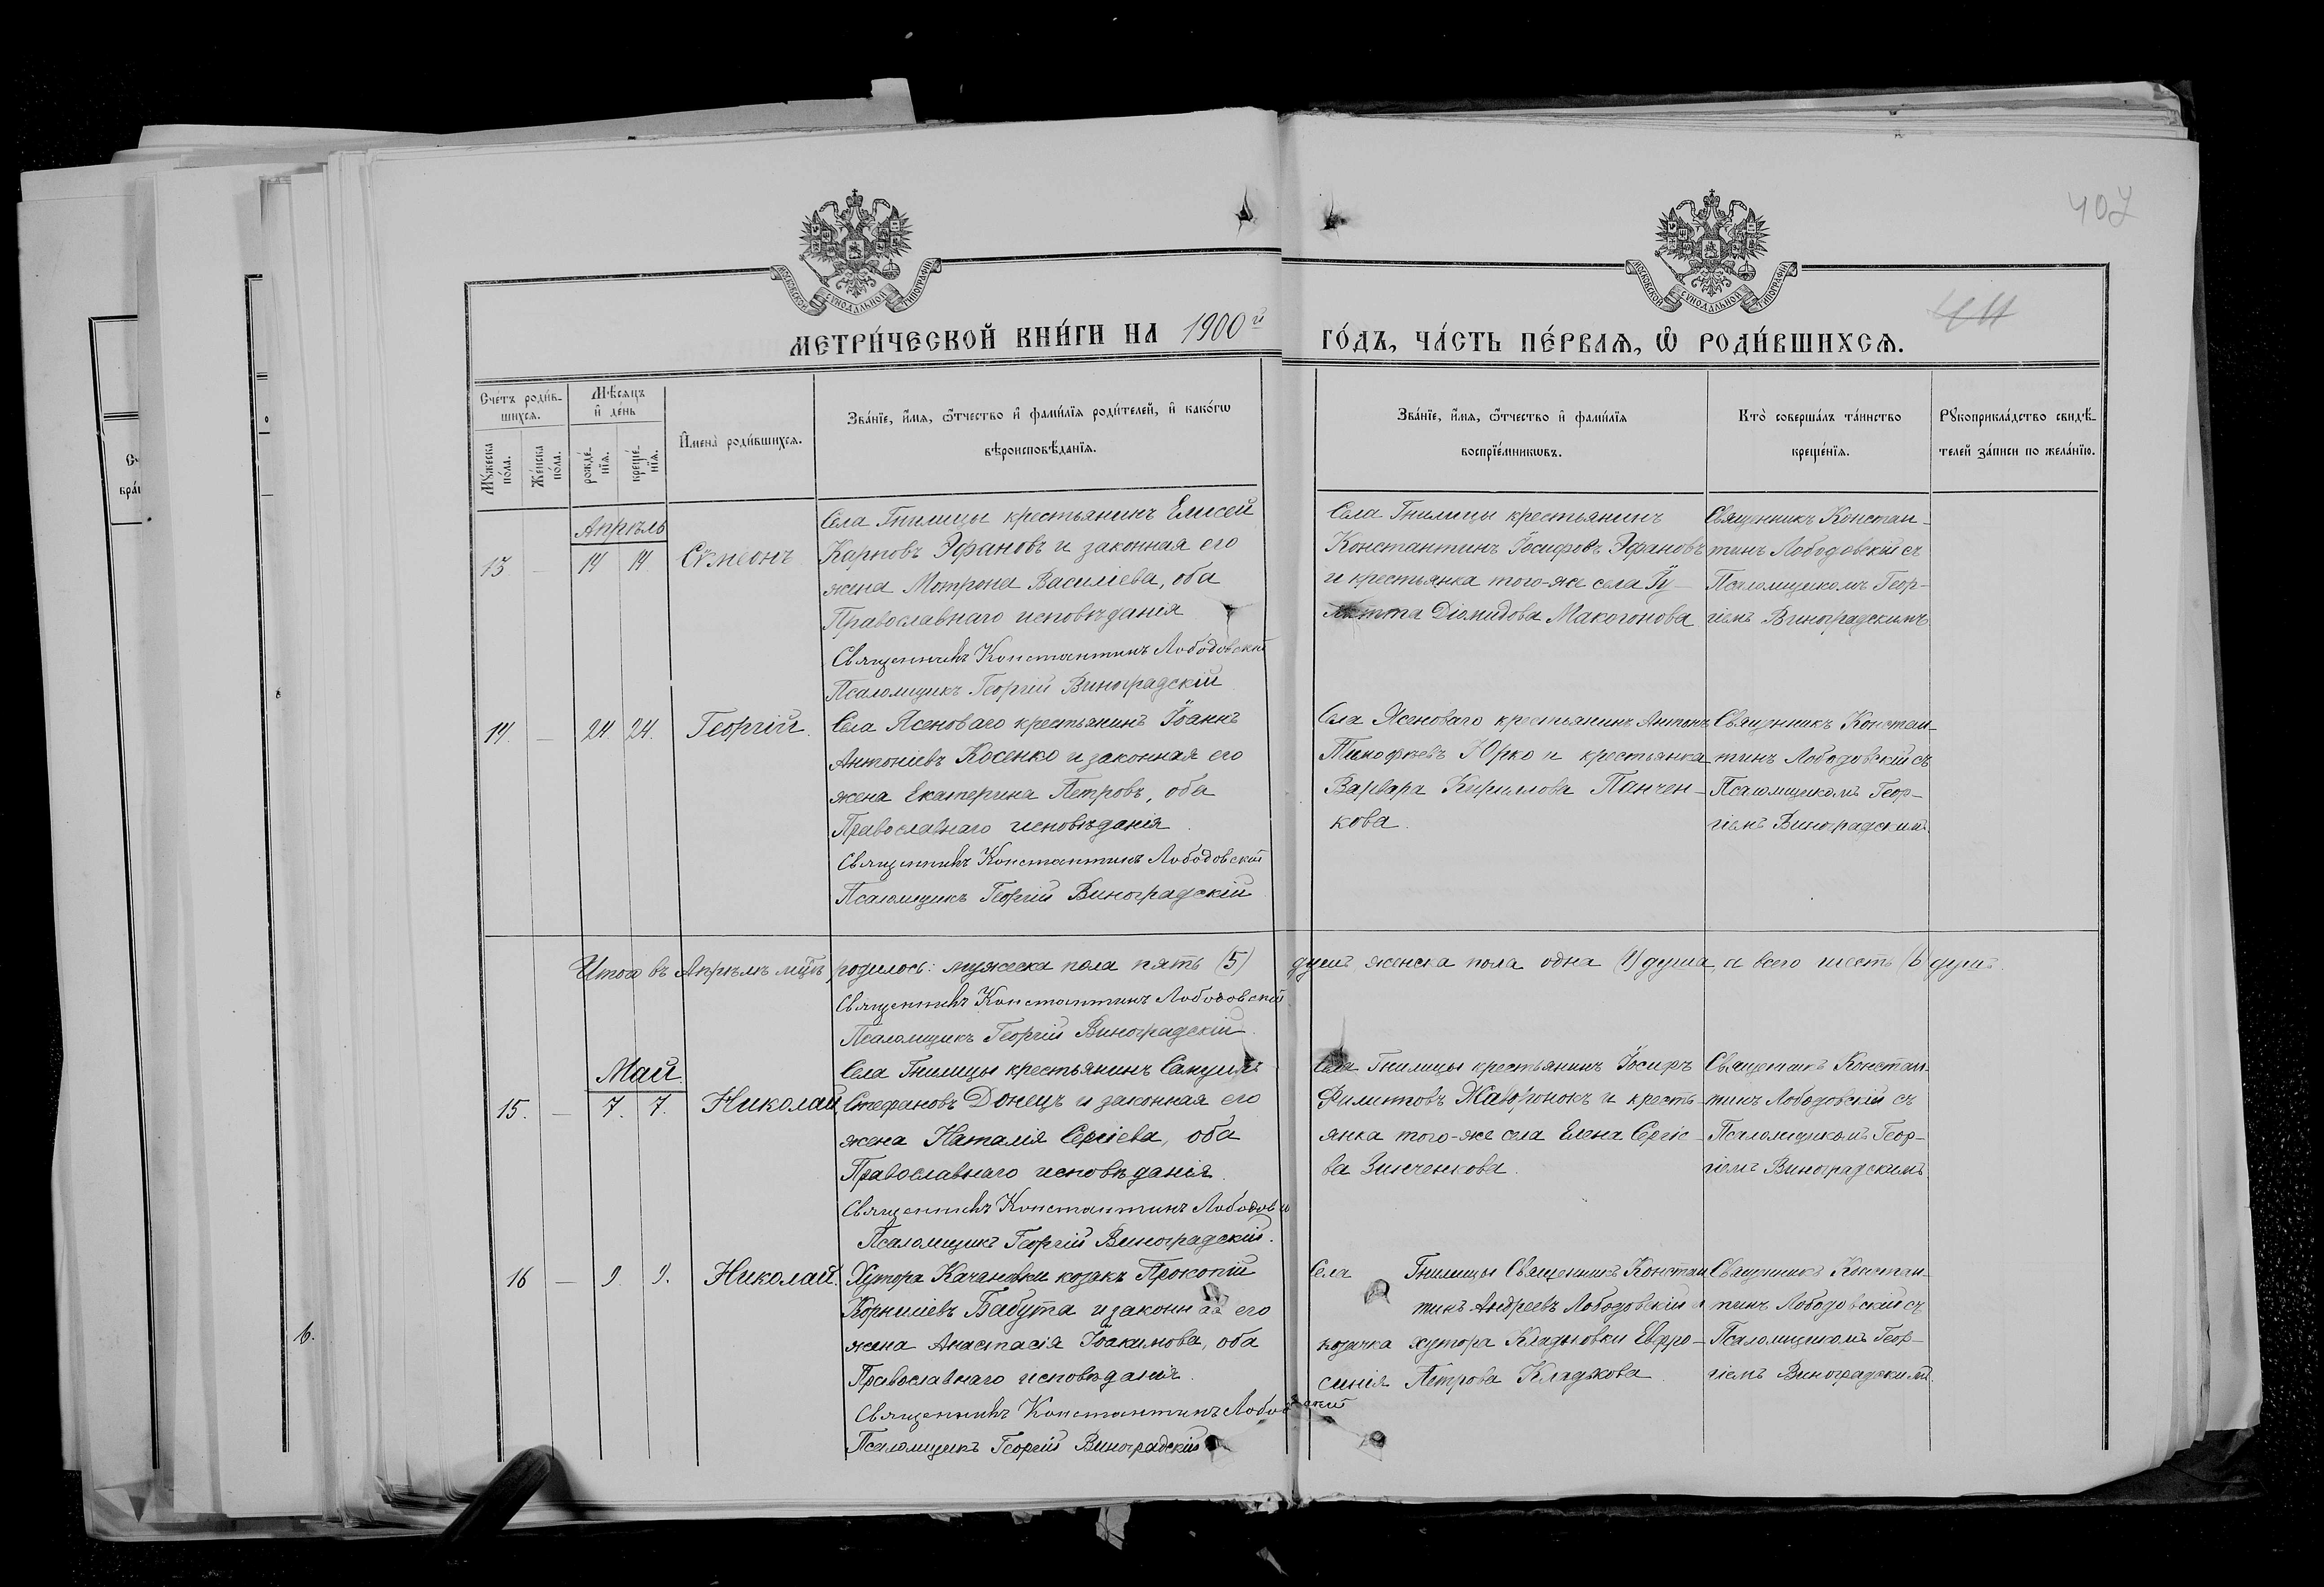 407
МОСКОВСКОЙ СѴНОДАЛЬНОЙ ТИПОГРАФІИ
МОСКОВСКОЙ СѴНОДАЛЬНОЙ ТИПОГРАФІИ
МЕТРИ́ЧЕСКОЙ КНИ́ГИ НА 1900й ГО́ДЪ, ЧА́СТЬ ПЕ́РВАѦ, Ѡ҆ РОДИ́ВШИХСѦ.
Сче́тъ роди́в-
шихсѧ.
Мꙋ́жеска
по́ла.
Же́нска
по́ла.
Мѣ́сѧцъ
и҆ де́нь
рожде́-
нїѧ.
креще́-
нїѧ.
И҆мена̀ роди́вшихсѧ.
Зва́нїе, и҆́мѧ, ѻ҆́тчество и҆ фами́лїѧ роди́телей, и҆ како́гѡ
вѣроисповѣ́данїѧ.
Зва́нїе, и҆́мѧ, ѻ҆́тчество и҆ фами́лїѧ
воспрїе́мникѡвъ.
Кто̀ соверша́лъ та́инство
креще́нїѧ.
Рꙋкоприкла́дство свидѣ́-
телей за́писи по жела́нїю.
Апрѣль
13 — 14 14 Сѵмеонъ
Села Гнилицы крестьянинъ Елисей
Карповъ Эфановъ и законная его
жена Мотрона Василіева, оба
Православнаго исповѣданія
Священникъ Константинъ Лободовскій
Псаломщикъ Георгій Виноградскій
Села Гнилицы крестьянинъ
Константинъ Іосифовъ Эфановъ
и крестьянка того-же села Іу-
литта Діомидова Макогонова
Священникъ Констан-
тинъ Лободовскій съ
Псаломщикомъ Геор-
гіемъ Виноградскимъ
14. — 24. 24. Георгій.
Села Ясеноваго крестьянинъ Іоаннъ
Антоніевъ Косенко и законная его
жена Екатерина Петровъ, оба
Православнаго исповѣданія.
Священникъ Константинъ Лободовскій
Псаломщикъ Георгій Виноградскій
Села Ясеноваго крестьянинъ Антонъ
Тимофѣевъ Юрко и крестьянка
Варвара Кириллова Панчен-
кова.
Священникъ Констан-
тинъ Лободовскій съ
Псаломщикомъ Геор-
гіемъ Виноградскимъ.
Итого въ Апрѣлѣ мцѣ родилось: мужеска пола пять (5) душъ женска пола одна (1) душа, а всего шесть (6 душъ.
Священникъ Константинъ Лободовскій
Псаломщикъ Георгій Виноградскій.
Май.
15. — 7. 7. Николай
Села Гнилицы крестьянинъ Самуилъ
Стефановъ Донецъ и законная его
жена Наталія Сергіева, оба
Православнаго исповѣданія.
Священникъ Константинъ Лободов
Псаломщикъ Георгій Виноградскій.
Села Гнилицы крестьянинъ Іосифъ
Филиповъ Жаворонокъ и кресть-
янка того-же села Елена Сергіе-
ва Зинченкова.
Священникъ Констан-
тинъ Лободовскій съ
Псаломщикомъ Геор-
гіемъ Виноградскимъ.
16 — 9. 9. Николай.
Хутора Качановки козакъ Прокопій
Корниліевъ Бабута и законная его
жена Анастасія Іоакимова, оба
Православнаго исповѣданія.
Священникъ Константинъ Лободовскій
Псаломщикъ Георгій Виноградскій
Села Гнилицы Священникъ Констан
тинъ Андреевъ Лободовскій и
козачка хутора Кладьковки Евфро-
синія Петрова Кладькова.
Священникъ Констан-
тинъ Лободовскій съ
Псаломщикомъ Геор-
гіемъ Виноградскимъ.